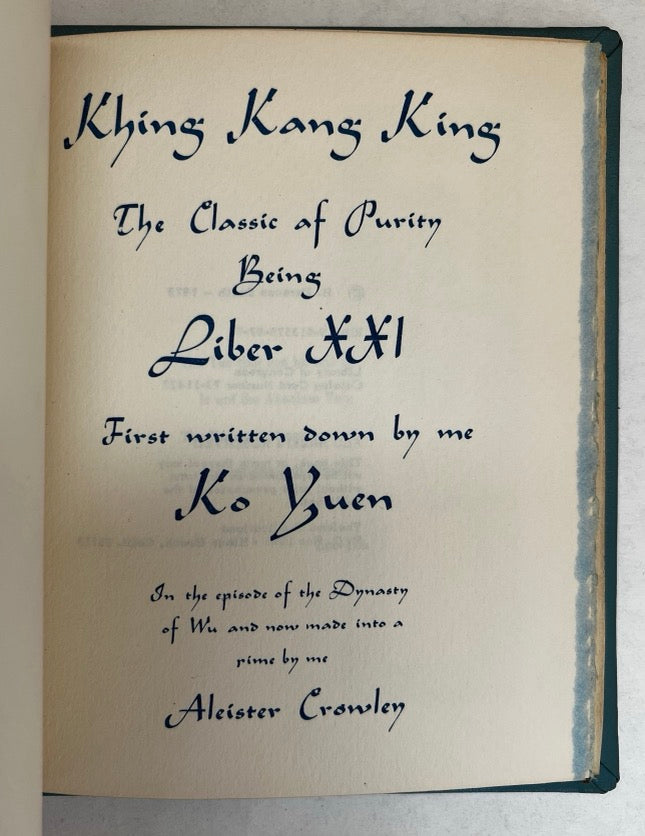 Khing Kang King
The Classic af Purity
Being
Liber XXI
First written down by me
Ko Yuen
In the episode of the Dynasty
of Wu and now made into a
rime by me
Aleister Crowley